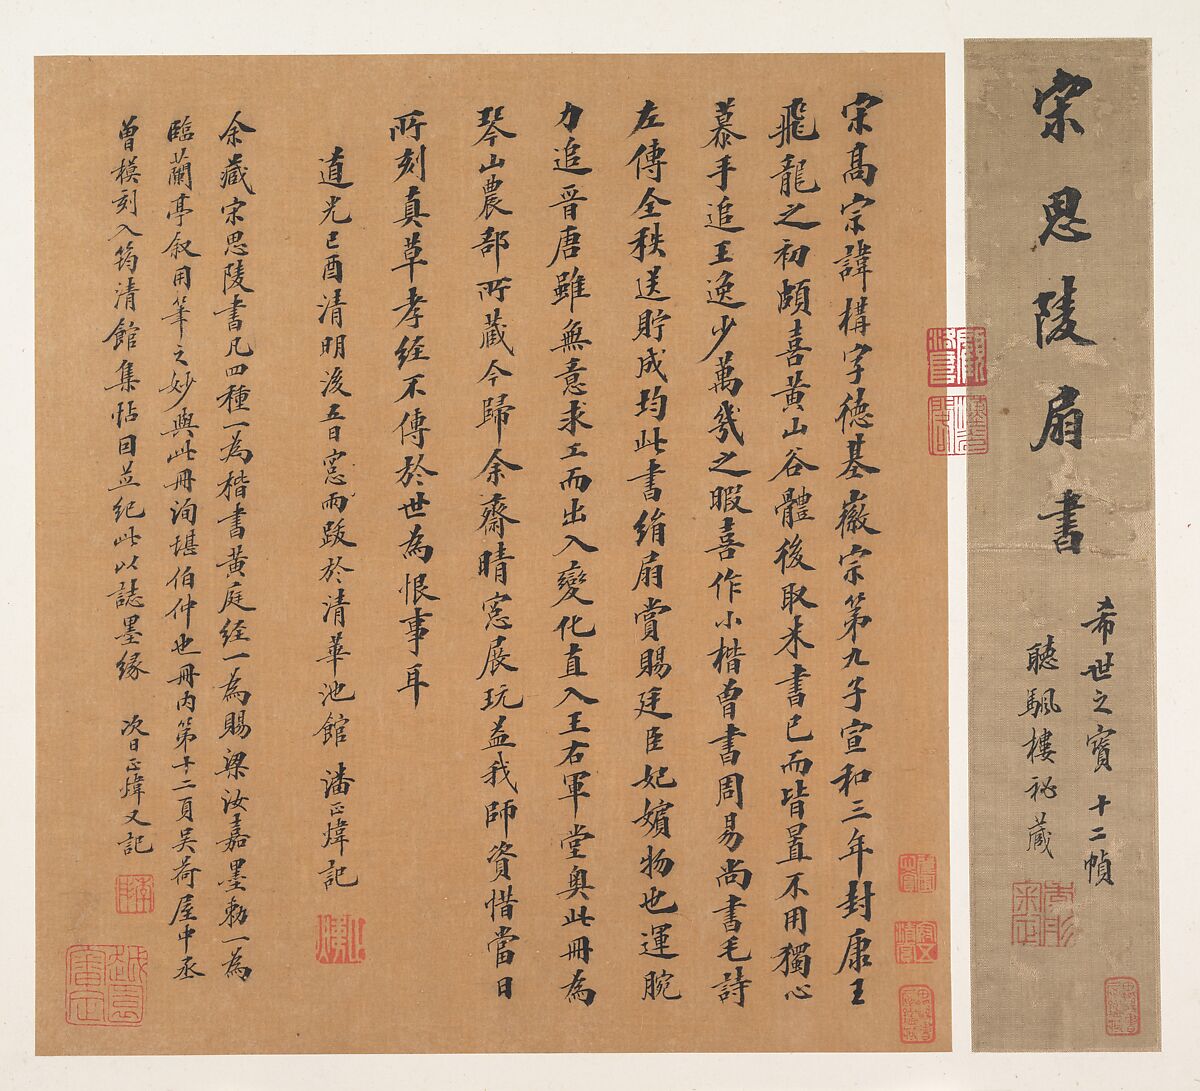 宋思陵扇書
希世之寶 十二幀
聽颿樓祕藏
宋高宗諱構字德基徽宗第九子宣和三年封康王
飛龍之初頗喜黃山谷體後取米書已而皆置不用獨心
慕手追王逸少萬幾之暇喜作小楷曾書周易尚書毛詩
左傳全秩送貯成均此書絹扇賞賜廷臣妃嬪物也運腕
力追晉唐雖無意求工而出入變化直入王右軍堂奧此冊為
琴山農部所藏今歸余齋晴窓展玩益我師資惜當日
所刻真草孝經不傳於世為恨事耳
道光己酉清明後五日窓雨跋於清華池館 潘正煒記
余藏宋思陵書凡四種一為楷書黃庭經一為賜梁汝嘉墨勅一為
臨蘭亭叙用筆之妙與此冊洵堪伯仲也冊內第十二頁吳荷屋中丞
曾模刻入筠清館集帖因並紀此以誌墨緣 次日正煒又記